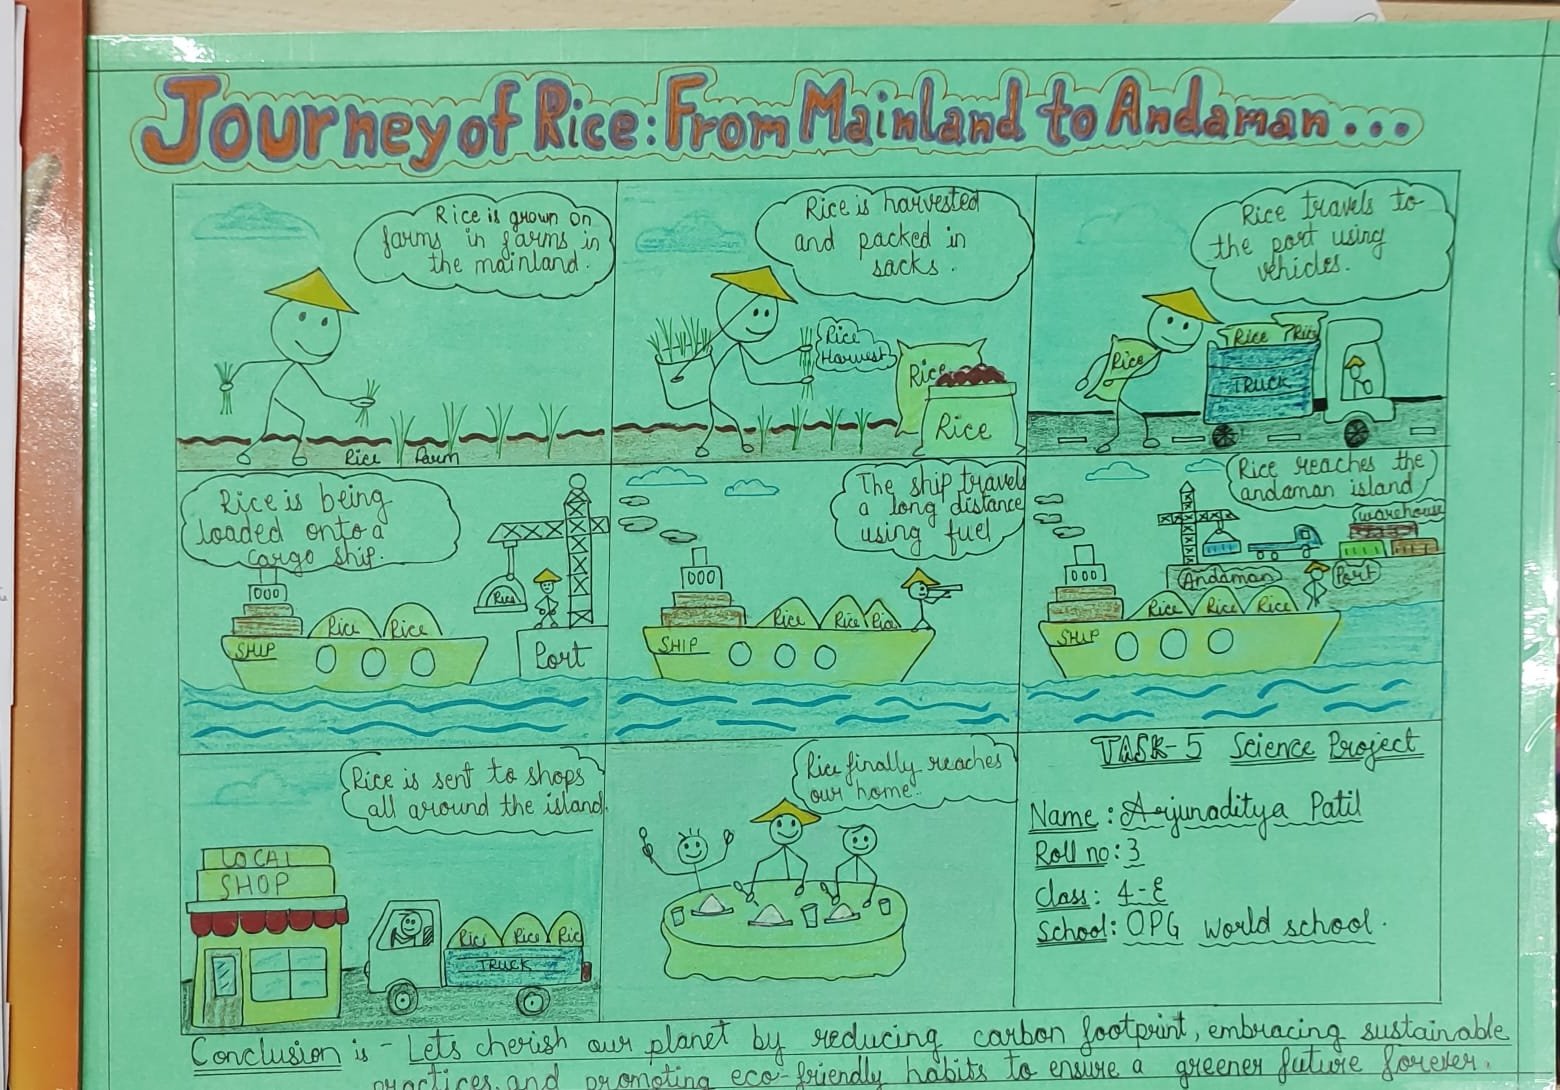 Journey of Rice: From Mainland to Andaman...
Rice is grown on
farms in farms in
the mainland.
Rice Farm
Rice is harvested
and packed in
sacks.
Rice
Harvest
Rice
Rice
Rice travels to
the port using
vehicles.
Rice
Rice
Rice
TRUCK
Rice is being
loaded onto a
cargo ship.
Rice
Rice
Rice
SHIP
Port
The ship travels
a long distance
using fuel
Rice
Rice
Rice
SHIP
Rice reaches the
andaman island
warehouse
Andaman
Port
Rice
Rice
Rice
SHIP
Rice is sent to shops
all around the island.
LOCAL
SHOP
Rice
Rice
Rice
TRUCK
Rice finally reaches
our home.
TASK-5 Science Project
Name: Arjunaditya Patil
Roll no: 3
Class: 4-E
School: OPG World school.
Conclusion is - Lets cherish our planet by reducing carbon footprint, embracing sustainable
practices, and promoting eco-friendly habits to ensure a greener future forever.